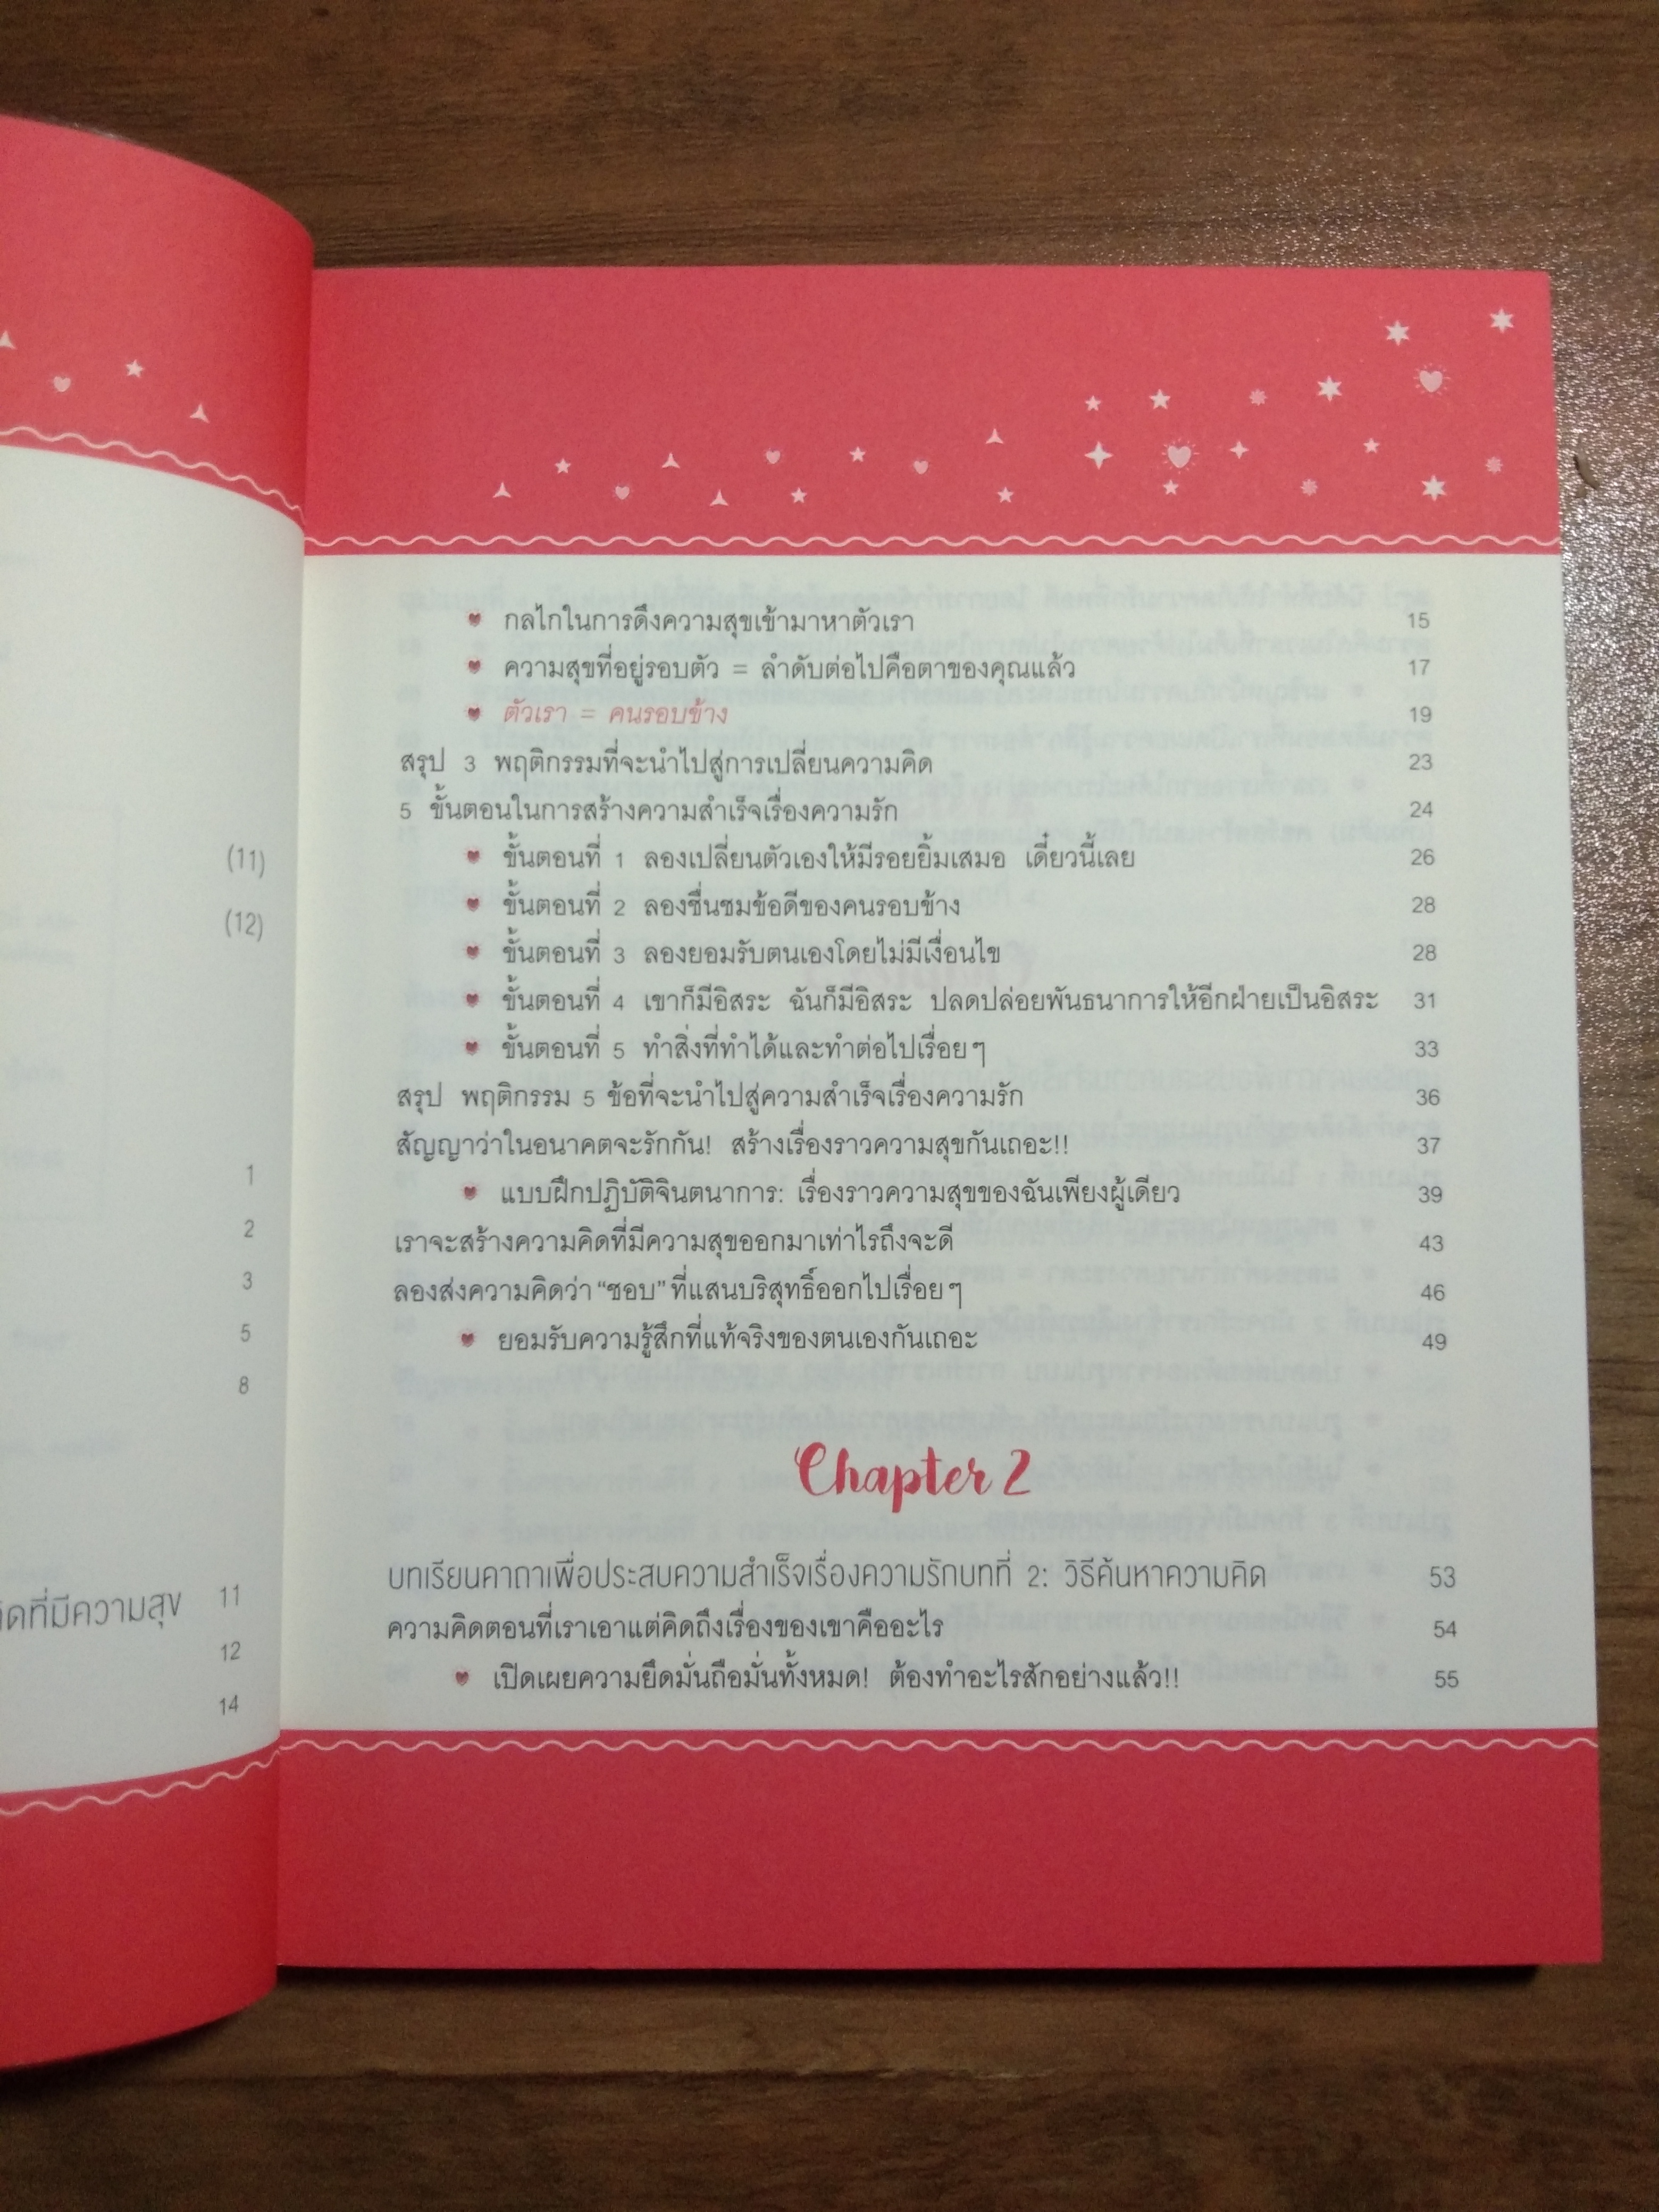 (11)
(12)
1
2
3
5
8
ดที่มีความสุข 11
12
14
กลไกในการดึงความสุขเข้ามาหาตัวเรา 15
ความสุขที่อยู่รอบตัว = ลำดับต่อไปคือตาของคุณแล้ว 17
ตัวเรา = คนรอบข้าง 19
สรุป 3 พฤติกรรมที่จะนำไปสู่การเปลี่ยนความคิด 23
5 ขั้นตอนในการสร้างความสำเร็จเรื่องความรัก 24
ขั้นตอนที่ 1 ลองเปลี่ยนตัวเองให้มีรอยยิ้มเสมอ เดี๋ยวนี้เลย 26
ขั้นตอนที่ 2 ลองชื่นชมข้อดีของคนรอบข้าง 28
ขั้นตอนที่ 3 ลองยอมรับตนเองโดยไม่มีเงื่อนไข 28
ขั้นตอนที่ 4 เขาก็มีอิสระ ฉันก็มีอิสระ ปลดปล่อยพันธนาการให้อีกฝ่ายเป็นอิสระ 31
ขั้นตอนที่ 5 ทำสิ่งที่ทำได้และทำต่อไปเรื่อยๆ 33
สรุป พฤติกรรม 5 ข้อที่จะนำไปสู่ความสำเร็จเรื่องความรัก 36
สัญญาว่าในอนาคตจะรักกัน! สร้างเรื่องราวความสุขกันเถอะ!! 37
แบบฝึกปฏิบัติจินตนาการ: เรื่องราวความสุขของฉันเพียงผู้เดียว 39
เราจะสร้างความคิดที่มีความสุขออกมาเท่าไรถึงจะดี 43
ลองส่งความคิดว่า “ชอบ” ที่แสนบริสุทธิ์ออกไปเรื่อยๆ 46
ยอมรับความรู้สึกที่แท้จริงของตนเองกันเถอะ 49
Chapter 2
บทเรียนคาถาเพื่อประสบความสำเร็จเรื่องความรักบทที่ 2: วิธีค้นหาความคิด 53
ความคิดตอนที่เราเอาแต่คิดถึงเรื่องของเขาคืออะไร 54
เปิดเผยความยึดมั่นถือมั่นทั้งหมด! ต้องทำอะไรสักอย่างแล้ว!! 55